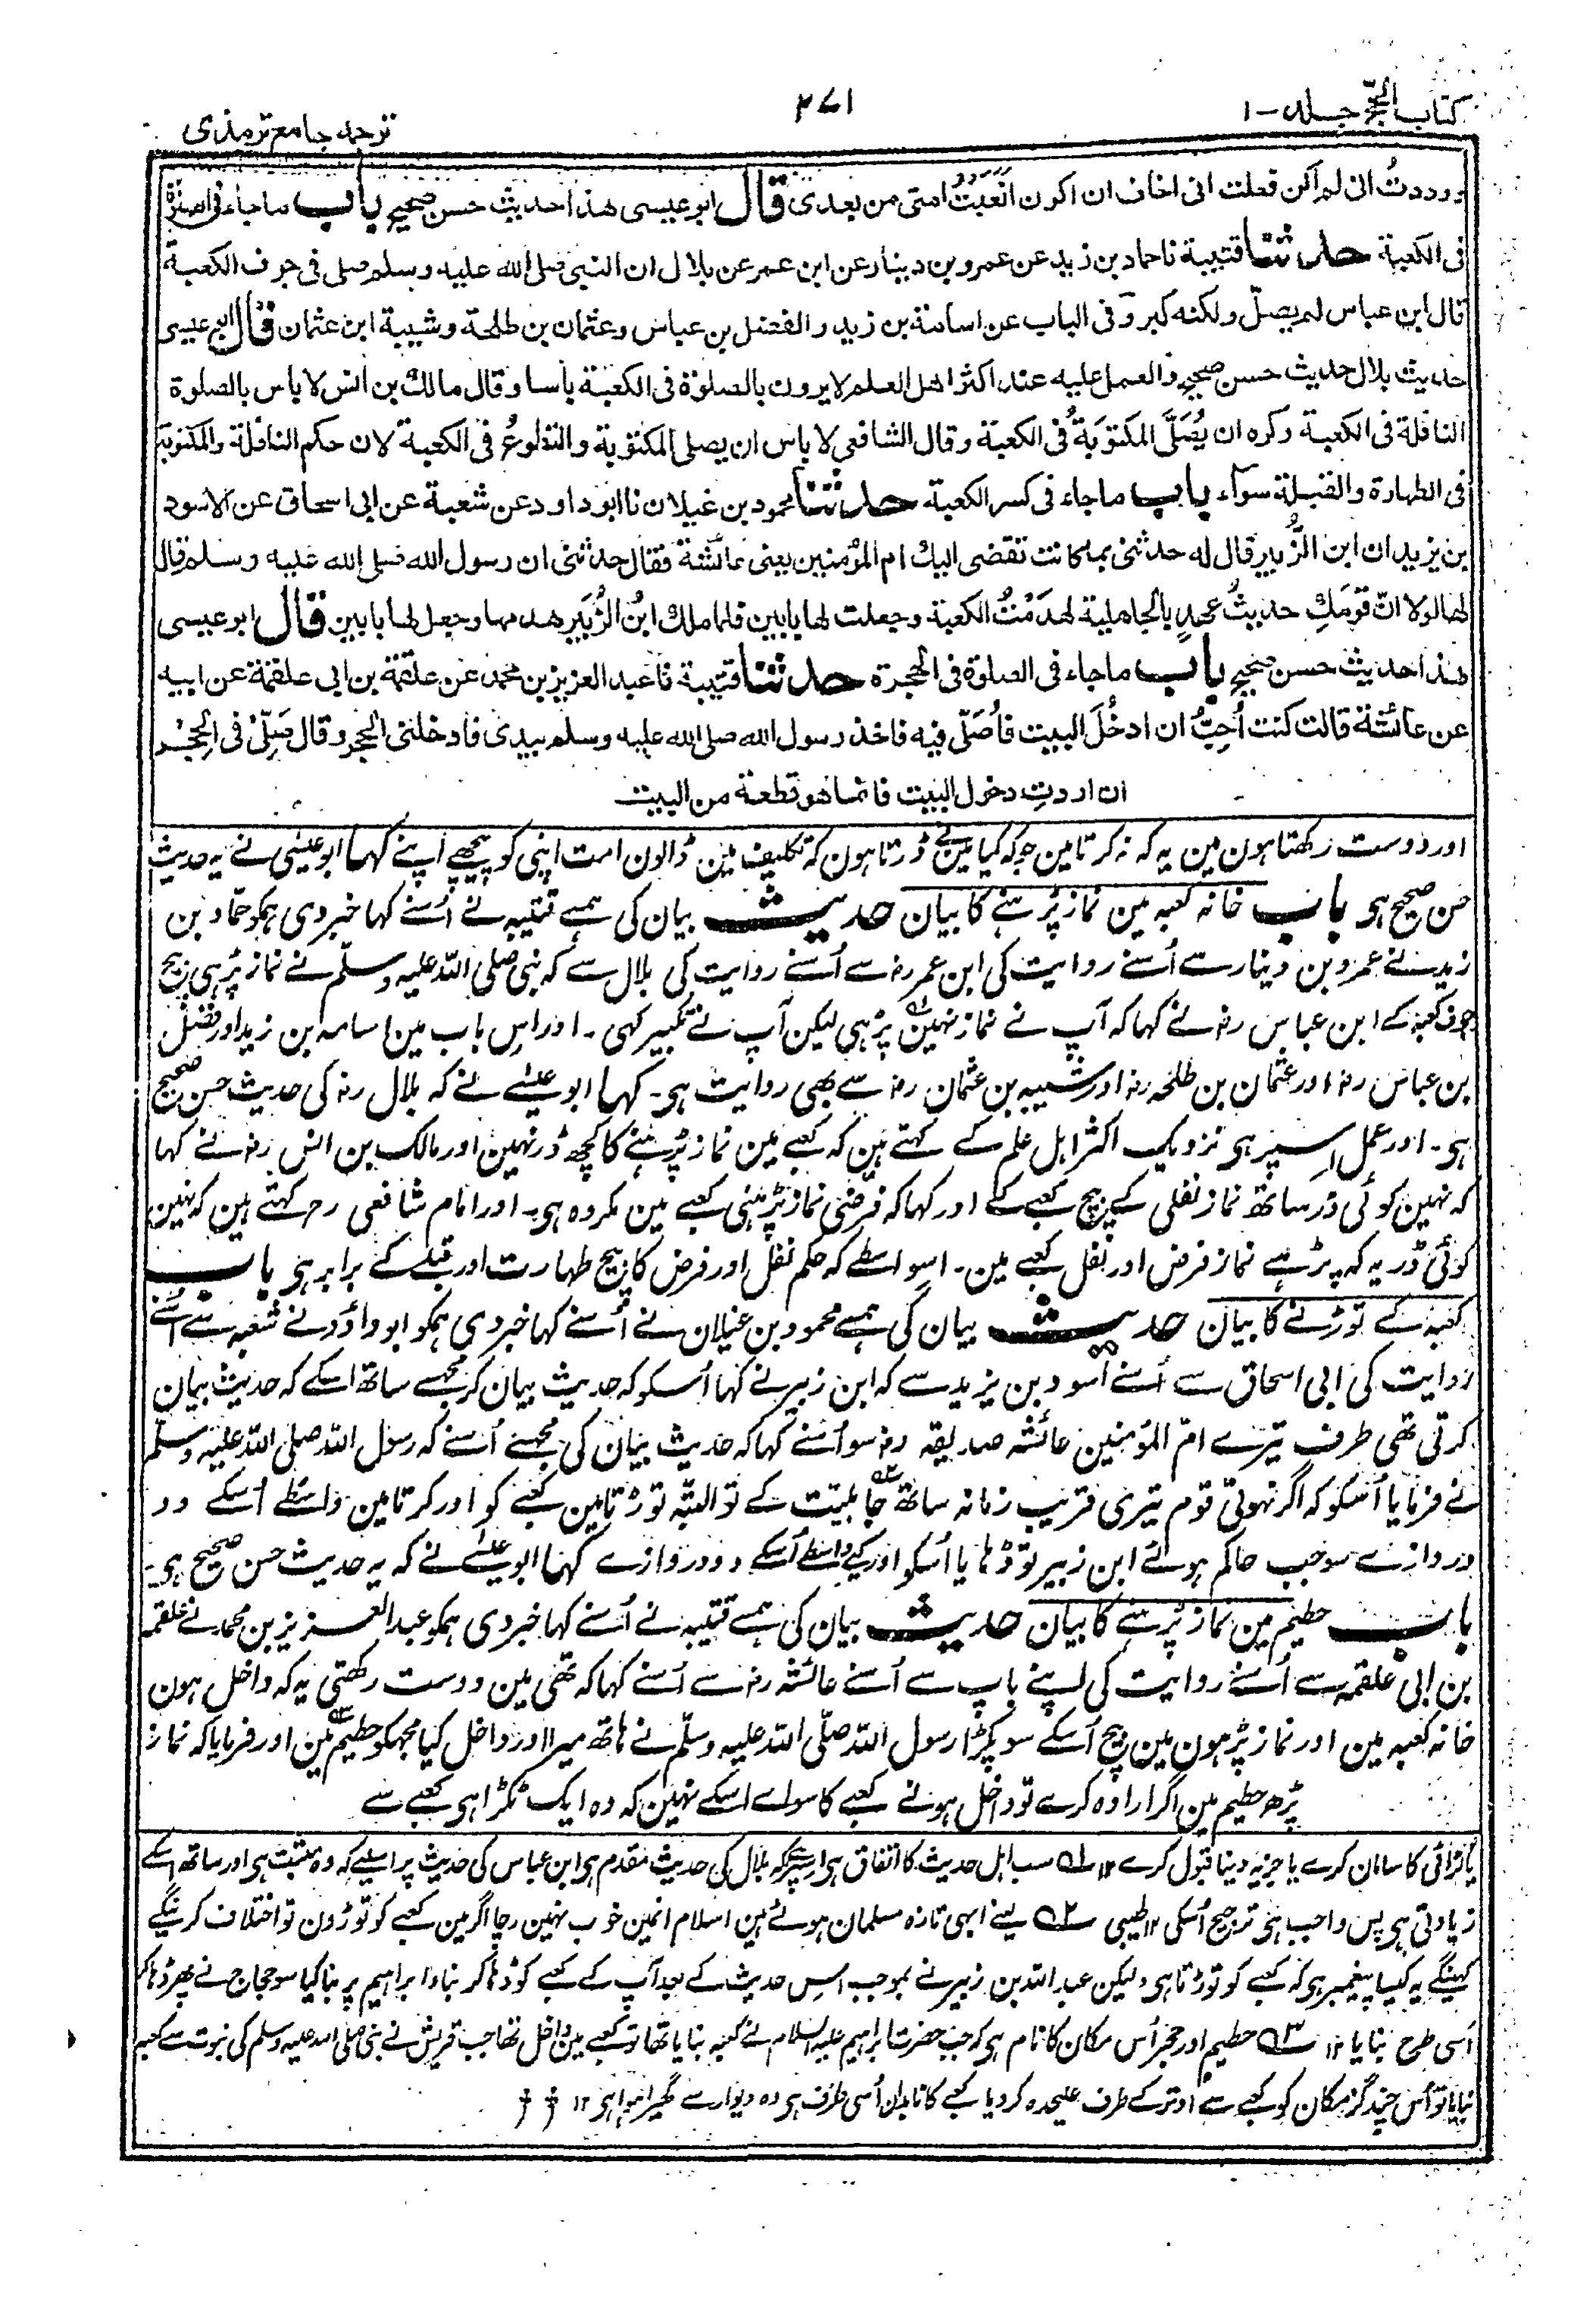 کتاب الحج جلد - ۱
۳۷۱
ترجمہ جامع ترمذی
ووددتُ انی لم اکن فعلت انی اخاف ان اکون اتعبتُ امتی من بعدی قال ابو عیسی هذا حدیث حسن صحیح باب ماجاء فی الصلوة
فی الکعبة حدثنا قتیبة نا حماد بن زید عن عمرو بن دینار عن ابن عمر عن بلال ان النبی صلی الله علیه وسلم صلی فی جوف الکعبة
قال ابن عباس لم یصلّ ولکنه کبر وفی الباب عن اسامة بن زید والفضل بن عباس وعثمان بن طلحة وشیبة ابن عثمان قال ابو عیسی
حدیث بلال حدیث حسن صحیح والعمل علیه عند اکثر اهل العلم لا یرون بالصلوة فی الکعبة باسا وقال مالك بن انس لا باس بالصلوة
النافلة فی الکعبة وکره ان یُصَلَّی المکتوبَةُ فی الکعبة وقال الشافعی لا باس ان یصلی المکتوبة والتطوعُ فی الکعبة لان حکم النافلة والمکتوبة
فی الطهارة والقبلة سوآء باب ماجاء فی کسر الکعبة حدثنا محمود بن غیلان نا ابوداود عن شعبة عن ابی اسحاق عن الاسود
بن یزید ان ابن الزُّبیر قال له حدثنی بما کانت تفضی الیك ام المؤمنین یعنی عائشة فقال حدثتنی ان رسول الله صلی الله علیه وسلم قال
لها لولا انّ قومَكِ حدیثُ عهدٍ بالجاهلیة لهدَمْتُ الکعبة وجعلت لها بابین فلما ملك ابنُ الزُّبَیر هدمها وجعل لها بابین قال ابو عیسی
هذا حدیث حسن صحیح باب ماجاء فی الصلوة فی الحجرة حدثنا قتیبة نا عبد العزیز بن محمد عن علقمة بن ابی علقمة عن ابیه
عن عائشة قالت کنت اُحِبُّ ان ادخُلَ البیت فاُصَلّی فیه فاخذ رسول الله صلی الله علیه وسلم بیدی فادخلنی الحجر وقال صَلِّی فی الحِجْر
ان اردتِ دخول البیت فانما هو قطعة من البیت
اور دوست رکھتا ہون مین یہ کہ نہ کرتا مین جو کہ کیا مینے ڈرتا ہون کہ تکلیف مین ڈالون امت اپنی کو پیچھے اپنے کہا ابو عیسٰی نے یہ حدیث
حسن صحیح ہی باب خانہ کعبہ مین نماز پڑہنے کا بیان حدیث بیان کی ہمسے قتیبہ نے اُسنے کہا خبر دی ہمکو حمّاد بن
زید نے عمرو بن دینار سے اُسنے روایت کی ابن عمر رضہ سے اُسنے روایت کی بلال سے کہ نبی صلی اللّٰہ علیہ وسلّم نے نماز پڑہی بیچ
جوف کعبہ کے ابن عباس رضہ نے کہا کہ آپ نے نماز نہین پڑہی لیکن آپ نے تکبیر کہی ۔ اور اس باب مین اسامہ بن زید اور فضل
بن عباس رضہ اور عثمان بن طلحہ رضہ اور شیبہ بن عثمان رضہ سے بھی روایت ہی ۔ کہا ابو عیسٰے نے کہ بلال رضہ کی حدیث حسن صحیح
ہی ۔ اور عمل اسپر ہی نزدیک اکثر اہل علم کے کہتے ہین کہ کعبے مین نماز پڑہنے کا کچھ ڈر نہین اور مالک بن انس رضہ نے کہا
کہ نہین کوئی ڈر ساتھ نماز نفلی کے بیچ کعبے کے اور کہا کہ فرضی نماز پڑہنی کعبے مین مکروہ ہی ۔ اور امام شافعی رحہ کہتے ہین کہ نہین
کوئی ڈر یہ کہ پڑہے نماز فرض اور نفل کعبے مین ۔ اسواسطے کہ حکم نفل اور فرض کا بیچ طہارت اور قبلے کے برابر ہی باب
کعبہ کے توڑنے کا بیان حدیث بیان کی ہمسے محمود بن غیلان نے اُسنے کہا خبر دی ہمکو ابو داؤد نے شعبہ سے اُسنے
روایت کی ابی اسحاق سے اُسنے اسود بن یزید سے کہ ابن زبیر نے کہا اُسکو کہ حدیث بیان کر مجھسے ساتھ اسکے کہ حدیث بیان
کرتی تھی طرف تیرے امّ المؤمنین عائشہ صدیقہ رضہ سو اُسنے کہا کہ حدیث بیان کی مجھسے اُسنے کہ رسول اللّٰہ صلی اللّٰہ علیہ وسلّم
نے فرمایا اُسکو کہ اگر نہوتی قوم تیری قریب زمانہ ساتھ جاہلیّت کے تو البتّہ توڑتا مین کعبے کو اور کرتا مین واسطے اُسکے دو
دروازے سو جب حاکم ہوئے ابن زبیر توڈہایا اُسکو اور کیے واسطے اُسکے دو دروازے کہا ابو عیسٰے نے کہ یہ حدیث حسن صحیح ہی ۔
باب حطیم مین نماز پڑہنے کا بیان حدیث بیان کی ہمسے قتیبہ نے اُسنے کہا خبر دی ہمکو عبدالعزیز بن محمد نے علقمہ
بن ابی علقمہ سے اُسنے روایت کی اپنے باپ سے اُسنے عائشہ رضہ سے اُسنے کہا کہ تھی مین دوست رکھتی یہ کہ داخل ہون
خانہ کعبہ مین اور نماز پڑہون مین بیچ اُسکے سو پکڑا رسول اللّٰہ صلّی اللّٰہ علیہ وسلّم نے ہاتھ میرا اور داخل کیا مجھکو حطیم مین اور فرمایا کہ نماز
پڑھ حطیم مین اگر ارادہ کرے تو داخل ہونے کعبے کا سواے اسکے نہین کہ وہ ایک ٹکڑا ہی کعبے سے
یا لڑائی کا سامان کرے یا جزیہ دینا قبول کرے ۱۲ سـ۱ سب اہل حدیث کا اتفاق ہی اسپر کہ بلال کی حدیث مقدم ہی ابن عباس کی حدیث پر اسلیے کہ وہ مثبت ہی اور ساتھ اسکے
زیادتی ہی پس واجب ہی ترجیح اُسکی ۱۲ طیبی سـ۲ یعنے ابھی تازہ مسلمان ہوئے ہین اسلام انمین خوب نہین رچا اگر مین کعبے کو توڑون تو اختلاف کرینگے
کہینگے یہ کیسا پیغمبر ہی کہ کعبے کو توڑتا ہی ولیکن عبداللہ بن زبیر نے بموجب اس حدیث کے بعد آپ کے کعبے کو ڈہاکر بناء ابراہیم پر بنا کیا سو حجاج نے پھر ڈہاکر
اُسی طرح بنایا ۱۲ سـ۳ حطیم اور حجر اُس مکان کا نام ہی کہ جب حضرت ابراہیم علیہ السلام نے کعبہ بنایا تھا تو کعبے مین داخل تھا جب قریش نے نبی صلی اللہ علیہ وسلم کی نبوت سے کعبہ
بنایا تو اُس چند گز مکان کو کعبے سے اوتر کے طرف علیحدہ کردیا کعبے کا نابدان اُسی طرف ہی وہ دیوار سے گھیرا ہوا ہی ۱۲